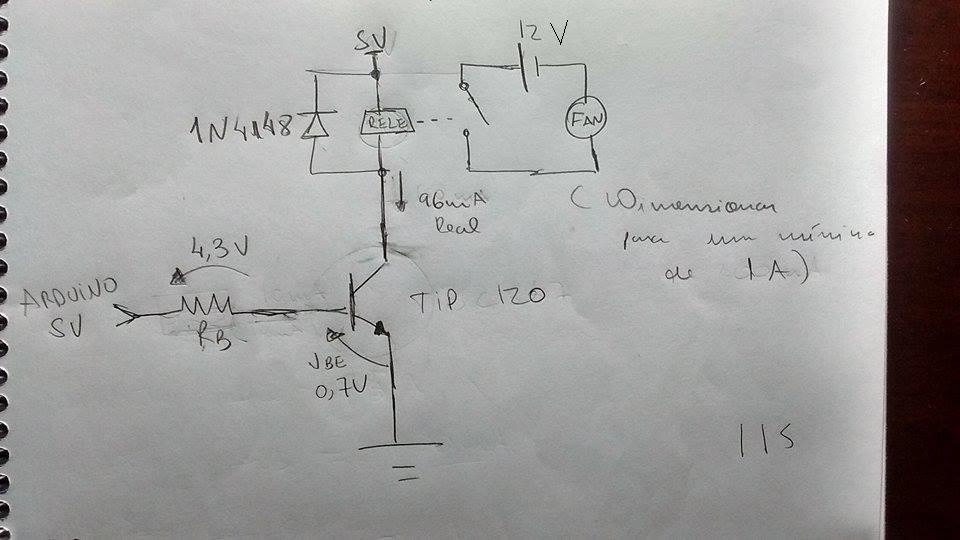 12 V
5V
1N4148
RELE
FAN
96mA
Real
(Dimensionar
para um mínimo
de 1A)
4,3V
ARDUINO
5V
RB
TiP 120
VBE
0,7V
115